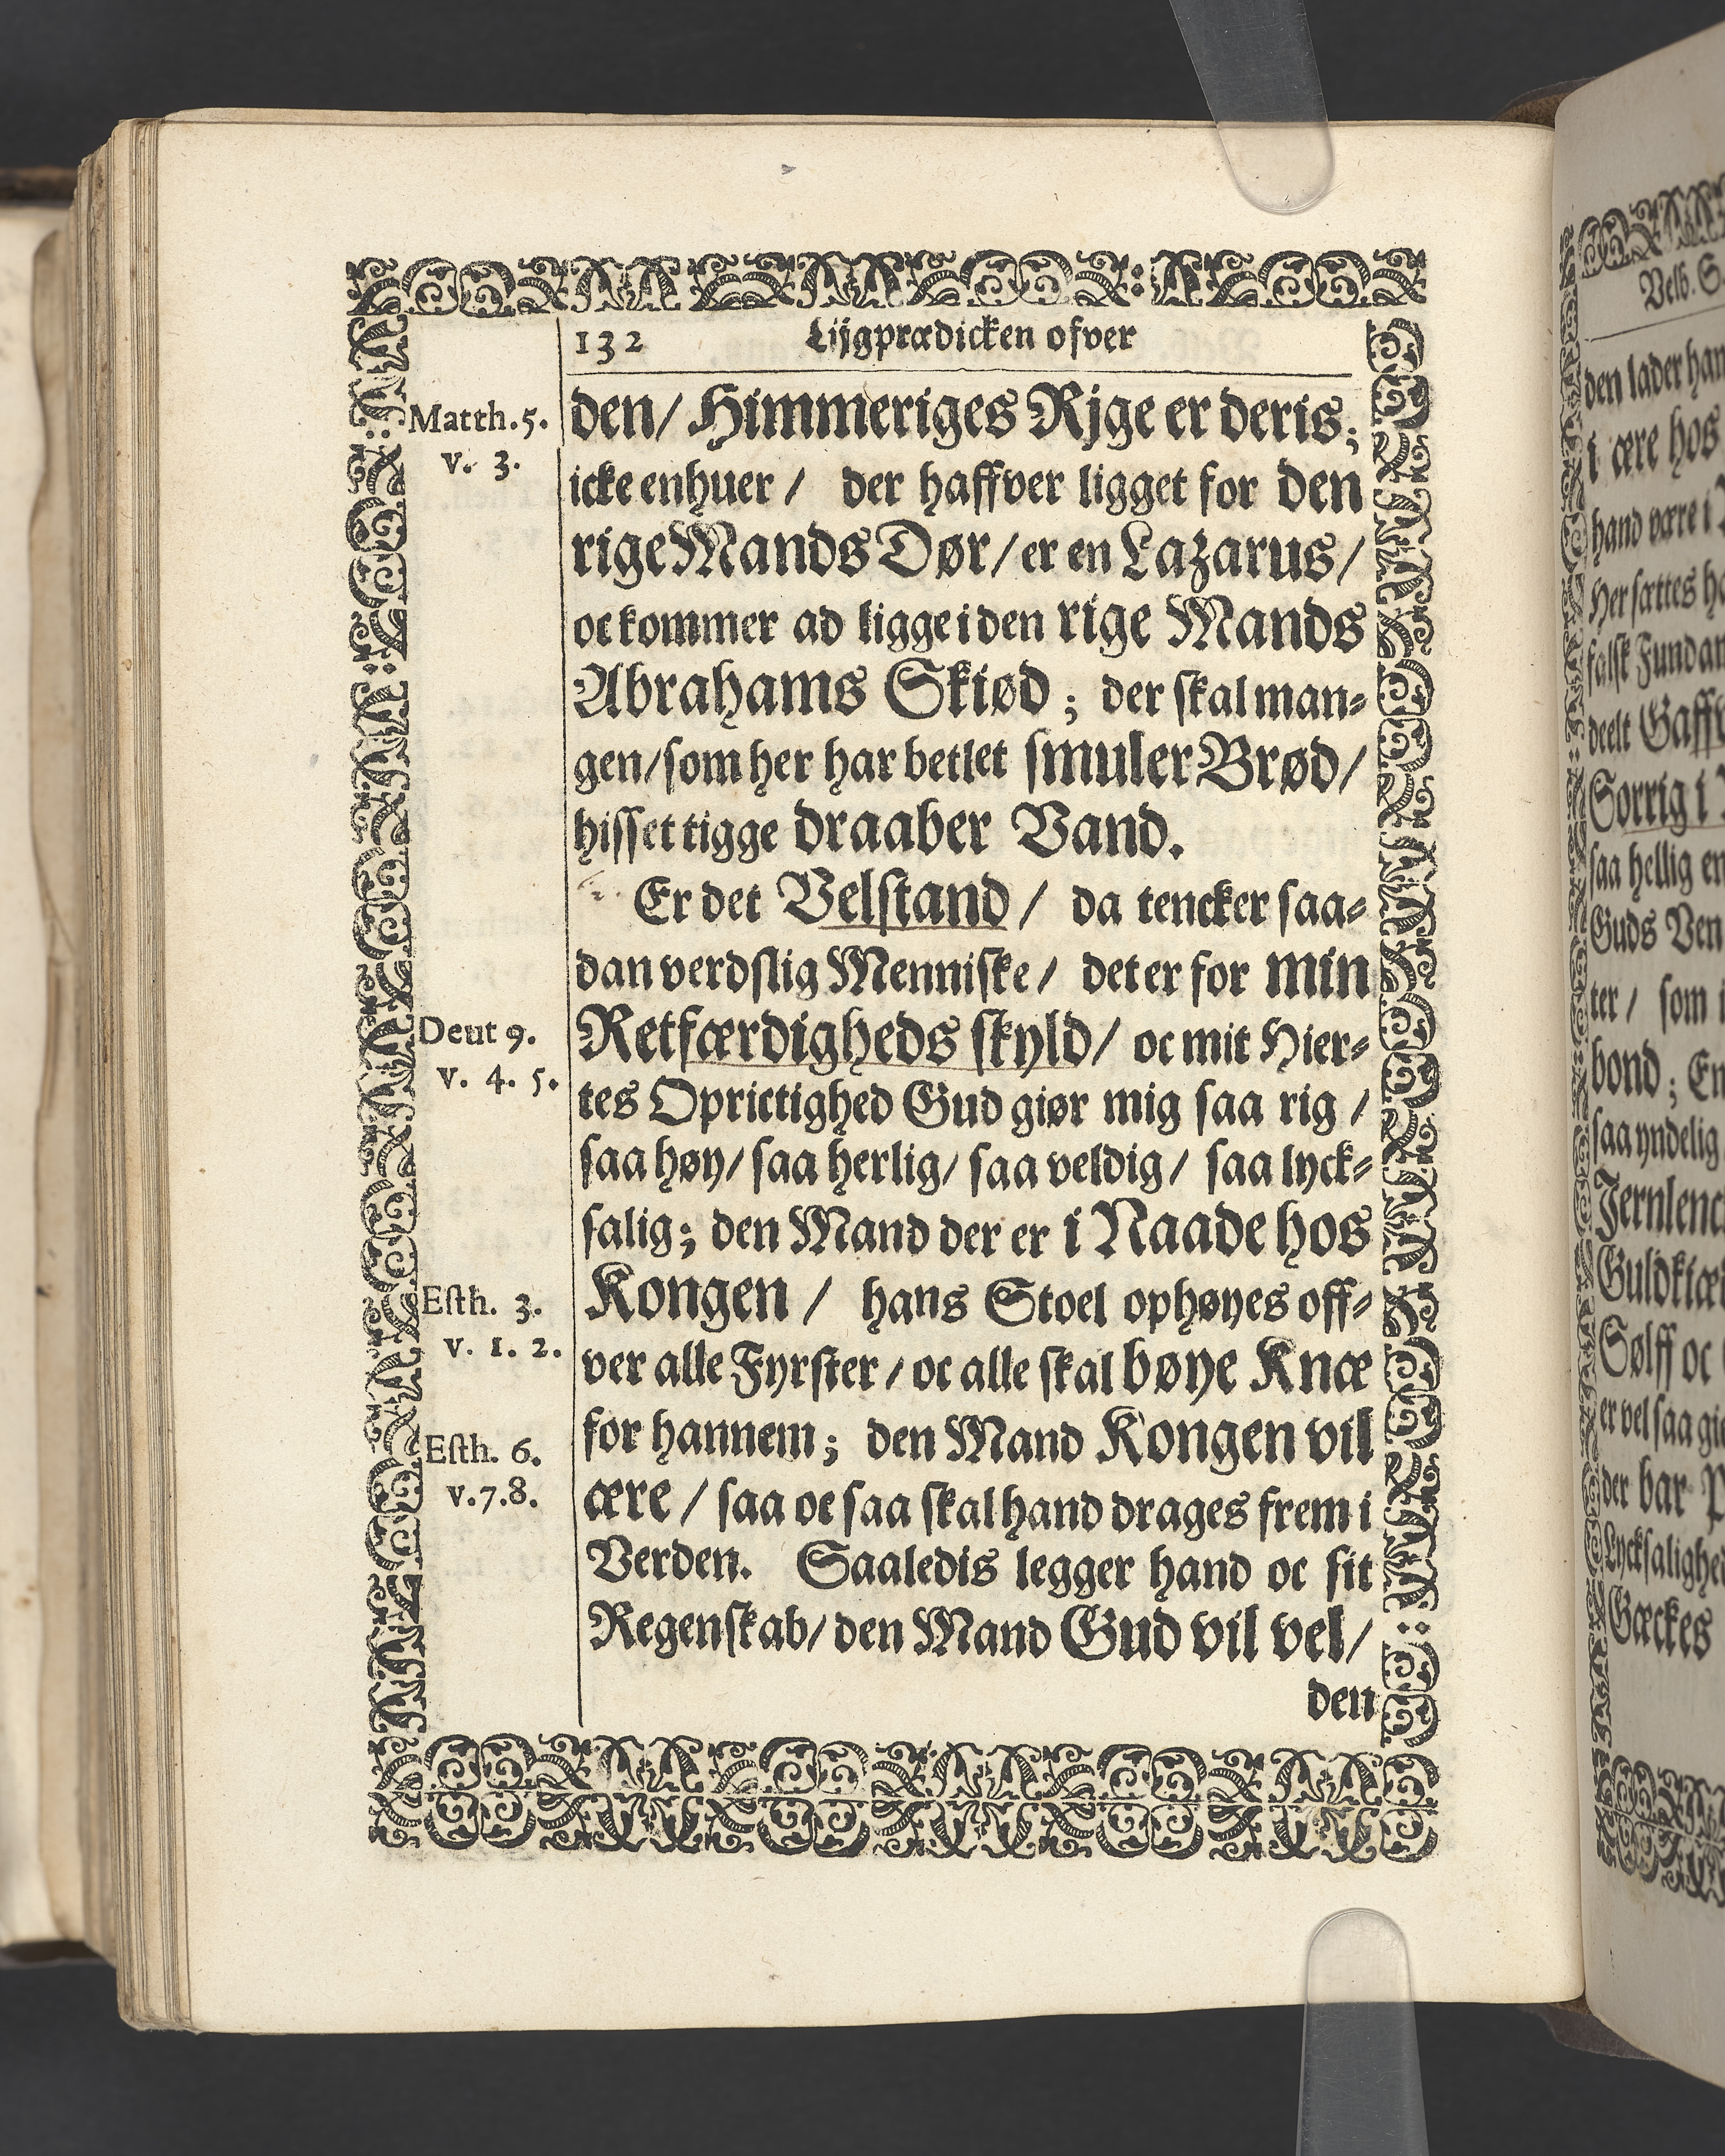 132 Lijgprædicken ofver
Matth. 5.
v. 3.
den/ Himmeriges Rjge er deris;
icke enhuer / der haffver ligget for den
rige Mands Dør/ er en Lazarus/
oc kommer ad ligge i den rige Mands
Abrahams Skiød ; der skal man-
gen/ som her har betlet smuler Brød/
hisset tigge draaber Vand.
Er det Velstand / da tencker saa-
dan verdslig Menniske / det er for min
Deut 9.
v. 4. 5.
Retfærdigheds skyld/ oc mit Hier-
tes Oprictighed Gud giør mig saa rig /
saa høy/ saa herlig/ saa veldig/ saa lyck-
salig; den Mand der er i Naade hos
Esth. 3.
v. 1. 2.
Kongen / hans Stoel ophøyes off-
ver alle Fyrster / oc alle skal bøye Knæ
for hannem; den Mand Kongen vil
Esth. 6.
v. 7. 8.
ære / saa oc saa skal hand drages frem i
Verden. Saaledis legger hand oc sit
Regenskab/ den Mand Gud vil vel/
den
Velb.
den lader
i ære hos
hand være i
Her sættes
falsk
deelt
Sorrig i
saa hellig
Guds
ter / som
bond ;
saa yndelig
Sølff oc
er vel saa
der bar
Gæckes